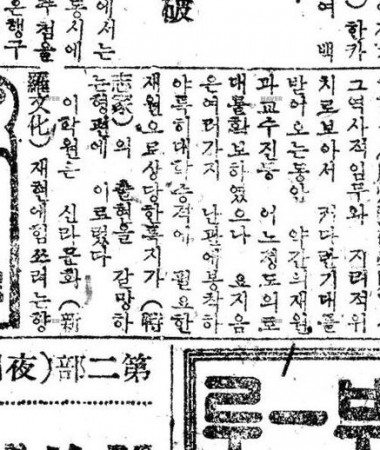 )한카
여 백
破
에서는
동시에
은행구
그역사적임무와 지리적위
치로보아서 커다란기대를
받아오는동안 약간의재원
과교수진등 어느정도의로
대를확보하였으나 요지음
은여러가지 난편에봉착하
야특히대학증적에 필요한
재원으로상당한독지가(特
志家)의 출현을 갈망하
는형편에 이르렀다
이학원는 신라문화(新
羅文化)재현에힘쓰려는향
第二部(夜
부一루